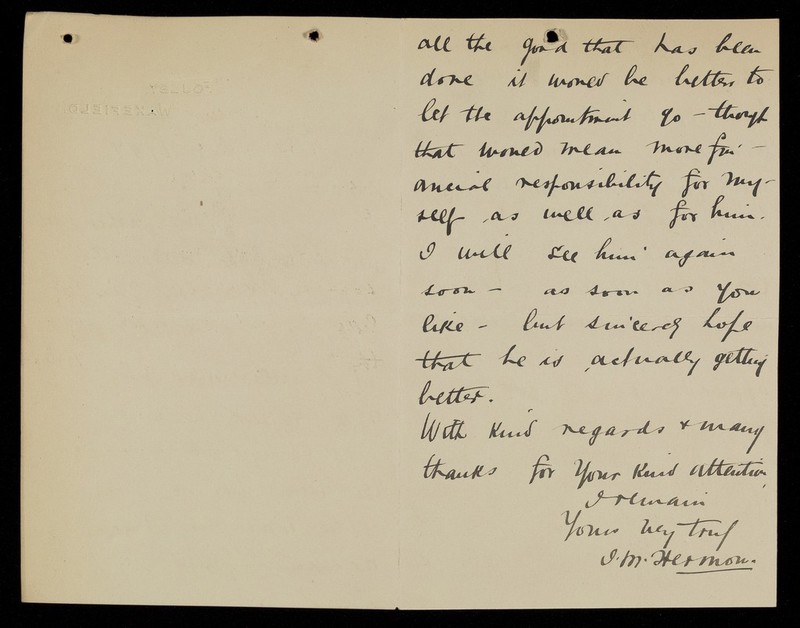 all the good that has been
done it would be better to
let the appointment go - though
that would mean more fin-
ancial responsibility for my-
self as well as for him.
I will see him again
soon - as soon as you
like - but sincerely hope
that he is actually getting
better.
With kind regards & many
thanks for your kind attention,
I remain
Yours very truly
I. M. Hermon.